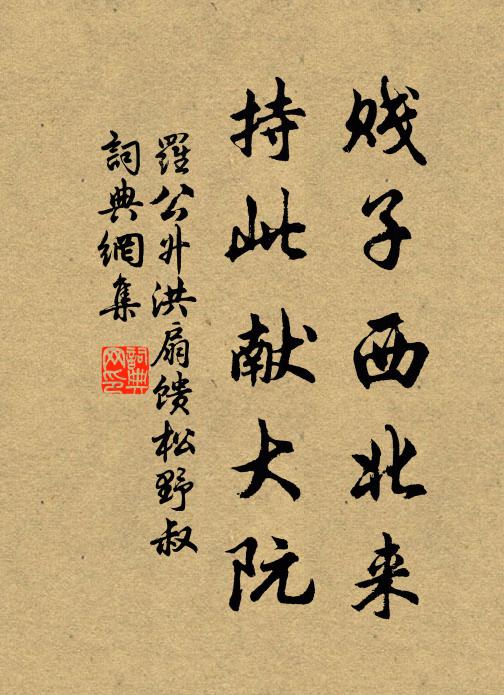 贱子西北来
持此献大阮
羅公升洪扇馈松野叔
詞典網集
詞典
网印